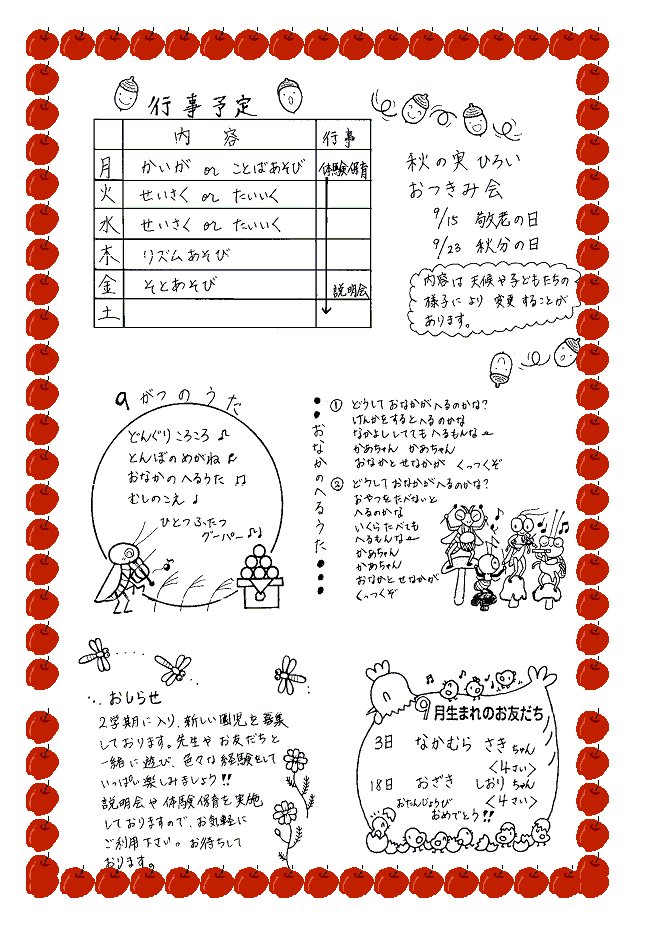 行事予定
内容 行事
月 かいが or ことばあそび 体験保育
火 せいさく or たいいく
水 せいさく or たいいく
木 リズムあそび
金 そとあそび 説明会
土
秋の実ひろい
おつきみ会
9/15 敬老の日
9/23 秋分の日
内容は天候や子どもたちの
様子により変更することが
あります。
9がつのうた
どんぐりころころ♪
とんぼのめがね♪
おなかのへるうた♫
むしのこえ♪
ひとつふたつ
グーパー♪♫
おなかのへるうた
① どうしておなかがへるのかな?
けんかをするとへるのかな
なかよししててもへるもんな〜
かあちゃん かあちゃん
おなかとせなかが くっつくぞ
② どうしておなかがへるのかな?
おやつをたべないと
へるのかな
いくらたべても
へるもんな〜
かあちゃん
かあちゃん
おなかとせなかが
くっつくぞ
おしらせ
2学期に入り、新しい園児を募集
しております。先生やお友だちと
一緒に遊び、色々な経験をして
いっぱい楽しみましょう!!
説明会や体験保育を実施
しておりますので、お気軽に
ご利用下さい。お待ちして
おります。
9月生まれのお友だち
3日 なかむら さきちゃん
<4さい>
18日 おざき しおりちゃん
<4さい>
おたんじょうび
おめでとう!!